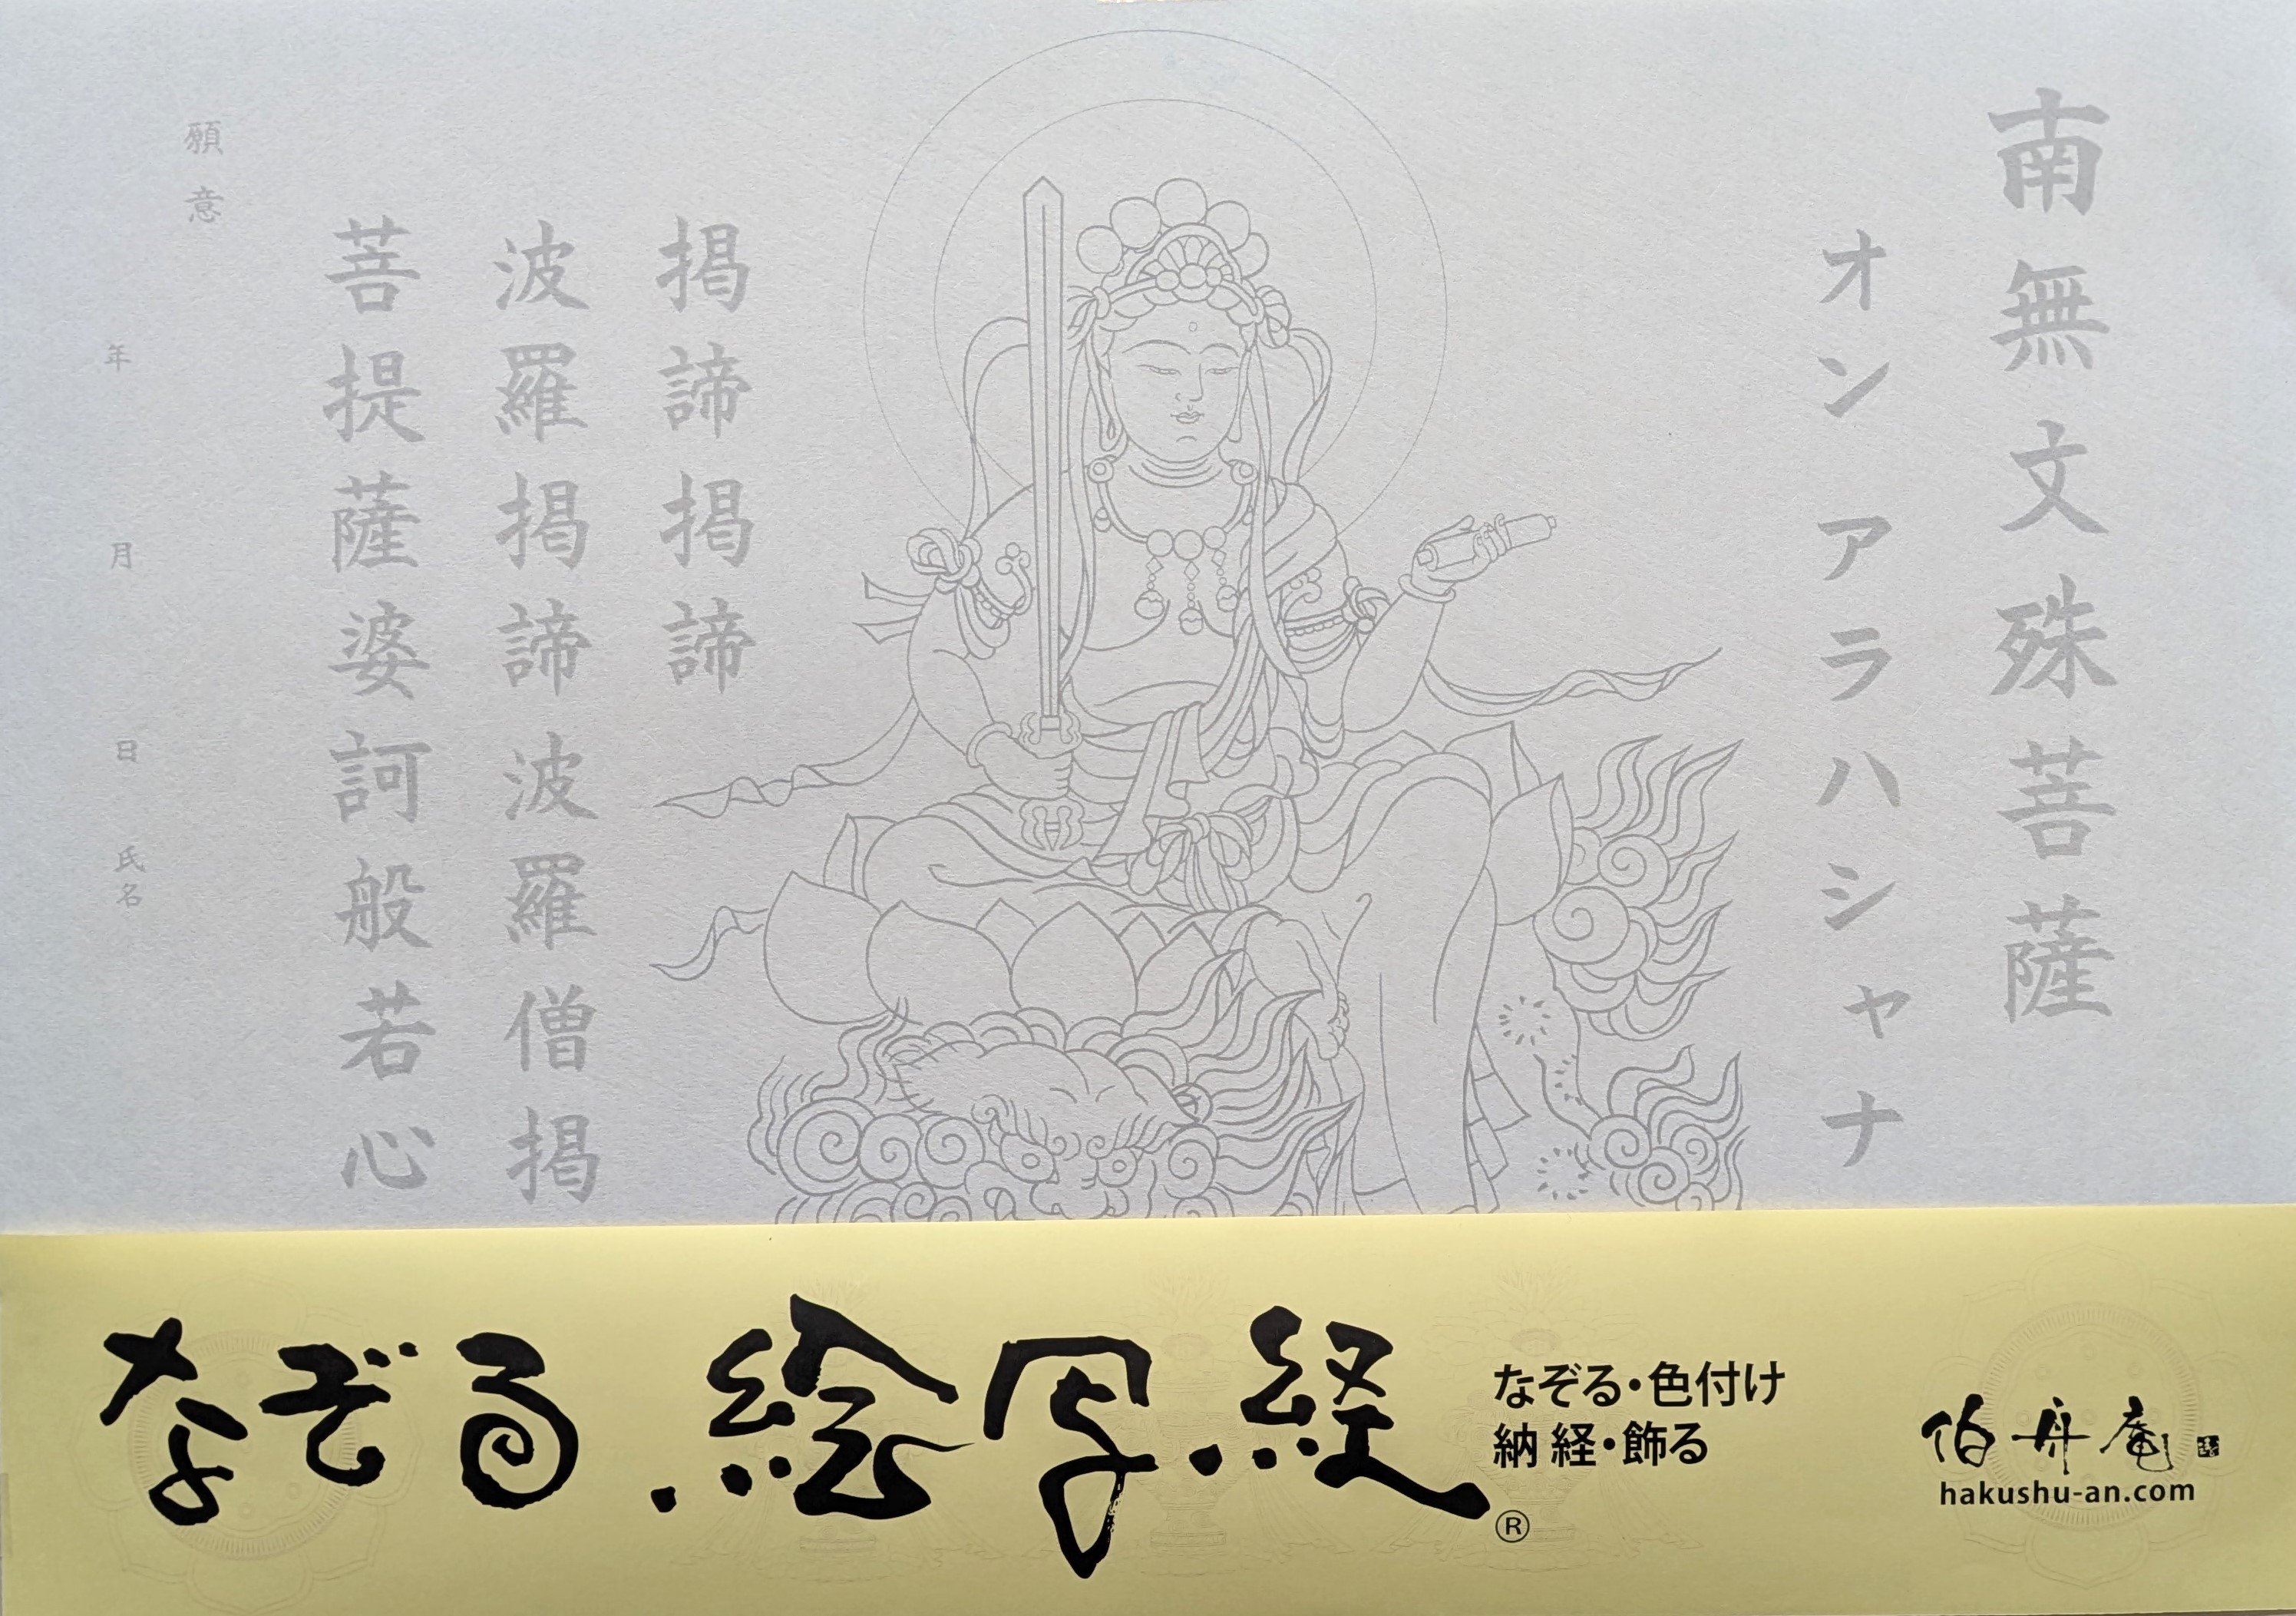 南無文殊菩薩
オン アラハシャナ
掲諦掲諦
波羅掲諦波羅僧掲
菩提薩婆訶般若心
願意
年 月 日 氏名
なぞる・絵写経®
なぞる・色付け
納経・飾る
伯舟庵
hakushu-an.com